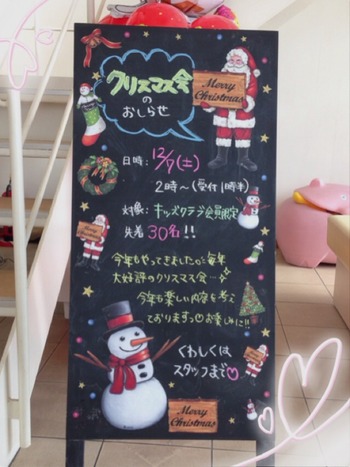 クリスマス会
の
おしらせ
Merry
Christmas
日時：12/7(土)
2時〜(受付1時半)
対象：キッズクラブ会員限定
先着30名!!
今年もやってきました♪毎年
大好評のクリスマス会…
今年も楽しい内容を考え
ておりますっ♡お楽しみに!!
くわしくは
スタッフまで♡
Merry
Christmas